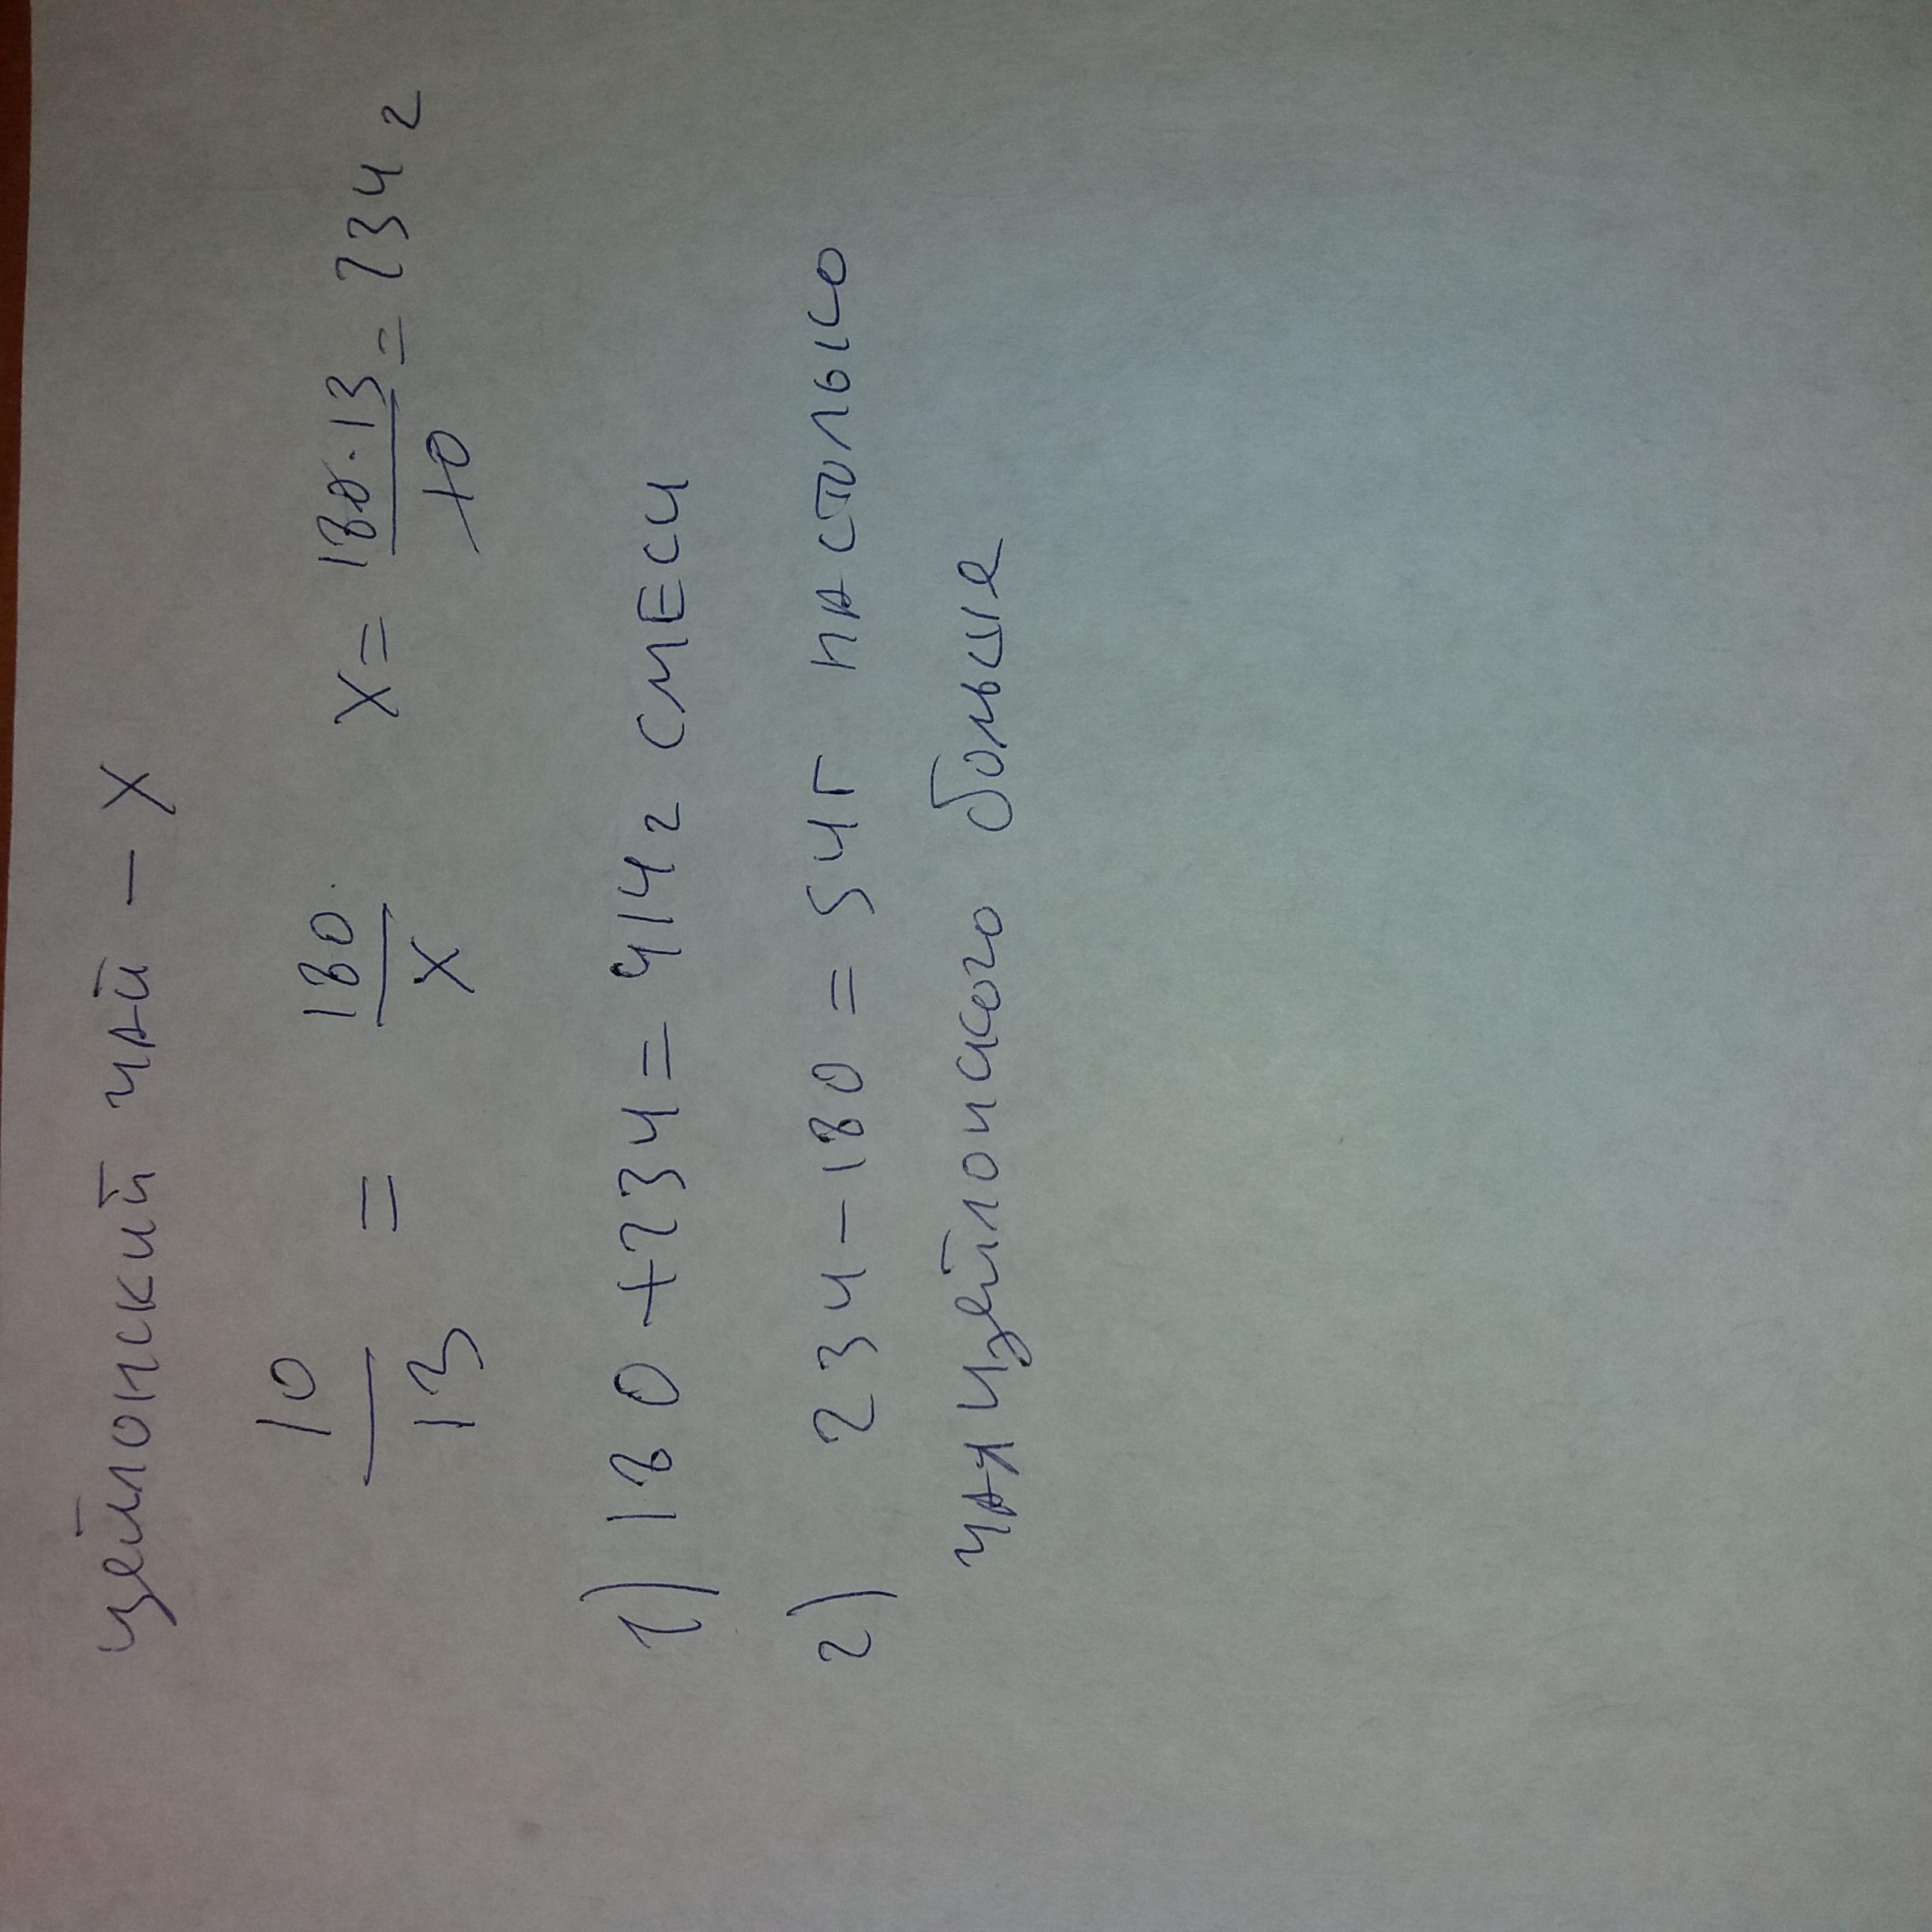 цейлонский чай – х
10/13 = 180/х х = 180·13/10 = 234 г
1) 180 + 234 = 414 г смеси
2) 234 – 180 = 54 г настолько
чая цейлонского больше